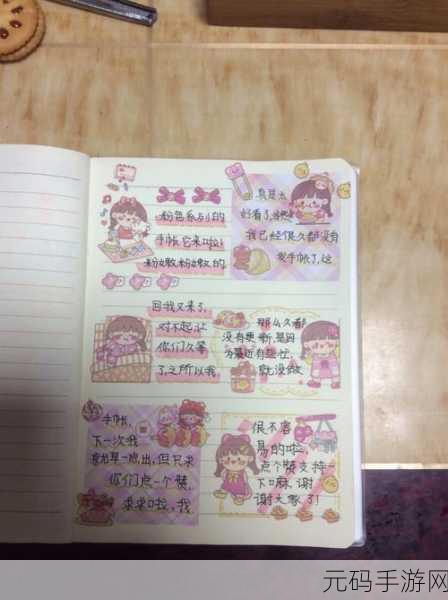 粉色系列的
手帐它来啦!
粉嫩粉嫩的
真是太
好看了,
我已经很久都没有
发手帐了,这
回我又来了,
对不起,让
你们久等
了,之所以我
那么久都
没有更新,是因
为最近有些忙,
就没做
手帐,
下一次我
就早一点出,但只求
你们点一个赞,
求求啦,我
很不容
易的啦,
点个赞支持一
下嘛,谢
谢大家了!
元码手游网